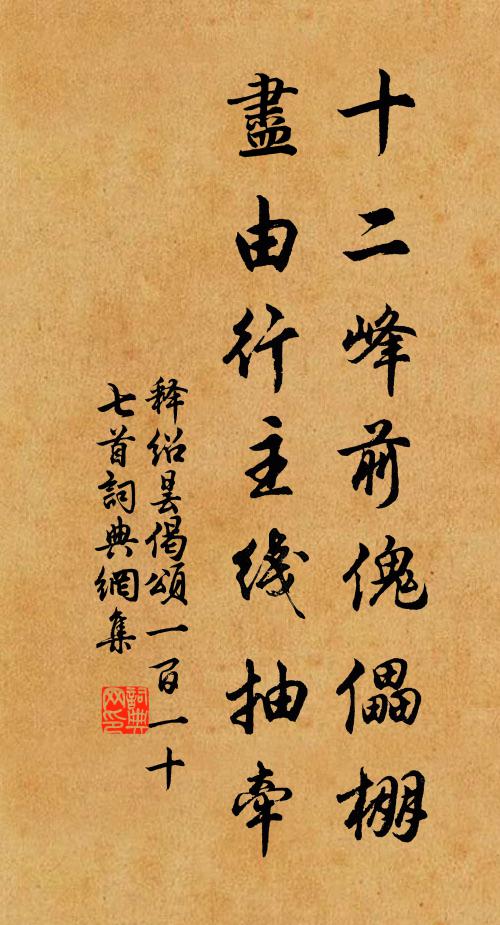 十二峰前傀儡棚
盡由行主线抽牽
释绍昙偈頌一百一十
七首詞典網集
詞典网印